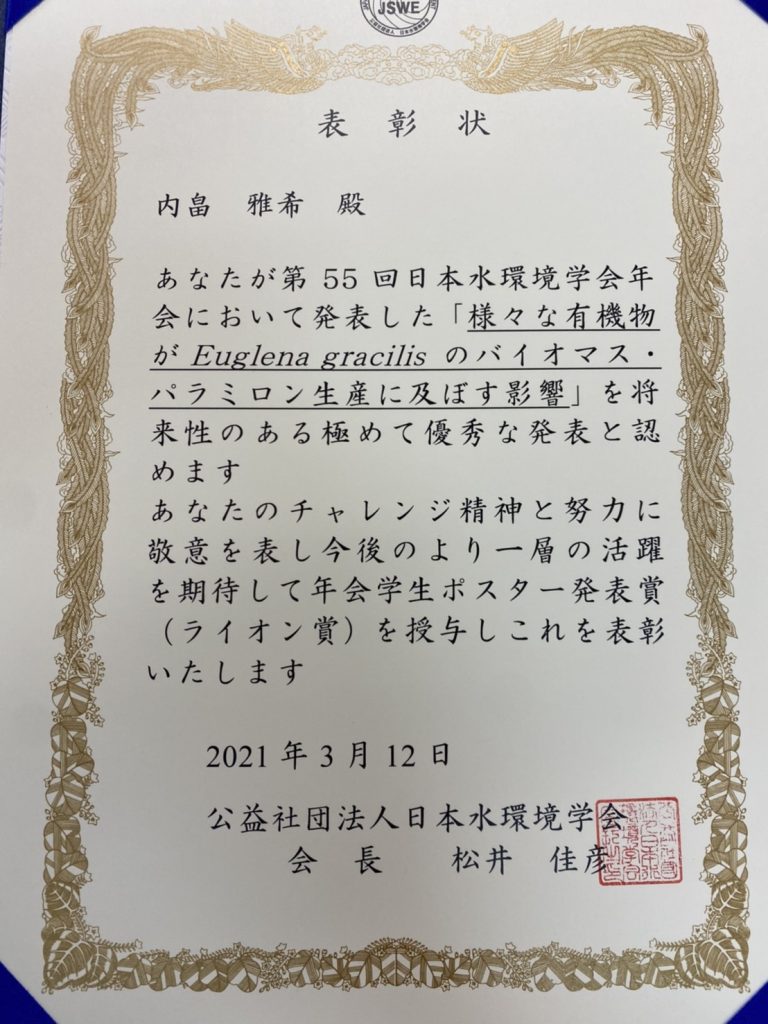 JSWE
公益社団法人 日本水環境学会
表彰状
内畠 雅希 殿
あなたが第 55 回日本水環境学会年
会において発表した「様々な有機物
が Euglena gracilis のバイオマス・
パラミロン生産に及ぼす影響」を将
来性のある極めて優秀な発表と認
めます
あなたのチャレンジ精神と努力に
敬意を表し今後のより一層の活躍
を期待して年会学生ポスター発表賞
（ライオン賞）を授与しこれを表彰
いたします
2021 年 3 月 12 日
公益社団法人日本水環境学会
会 長 松井 佳彦